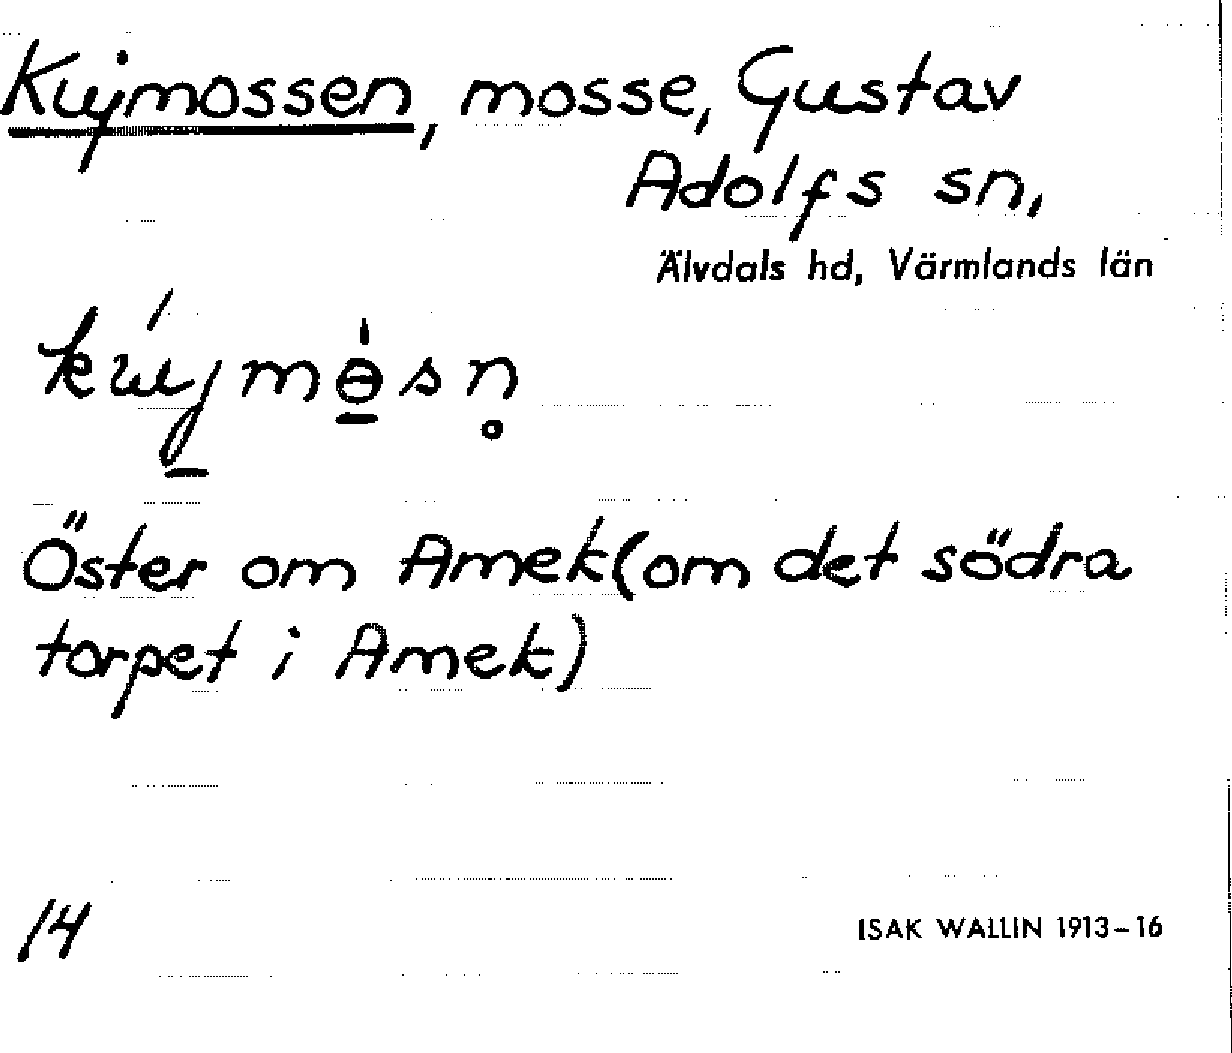 Kujmossen, mosse, Gustav
Adolfs sn,
Älvdals hd, Värmlands län
kújmòsn̥
Öster om Amek (om det södra
torpet i Amek)
14
ISAK WALLIN 1913-16